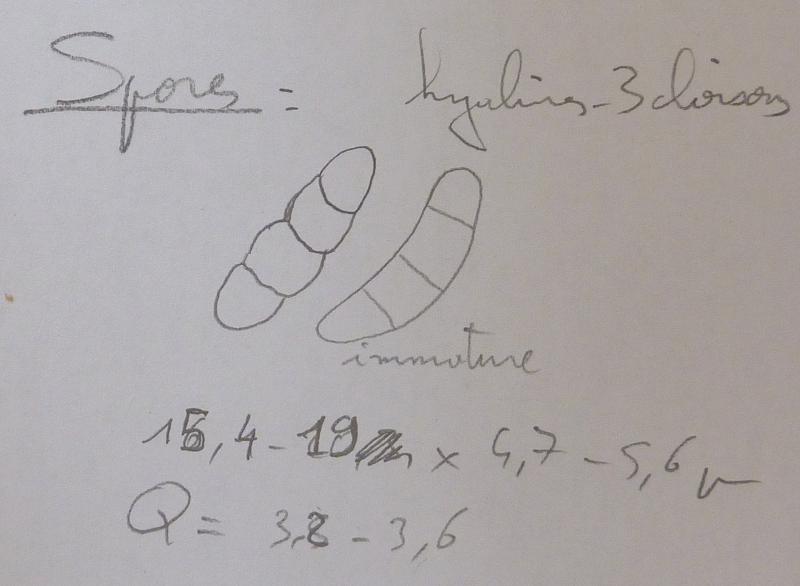 Spores = hyalines - 3 cloisons
immature
15,4 - 19 x 4,7 - 5,6 µ
Q = 3,2 - 3,6